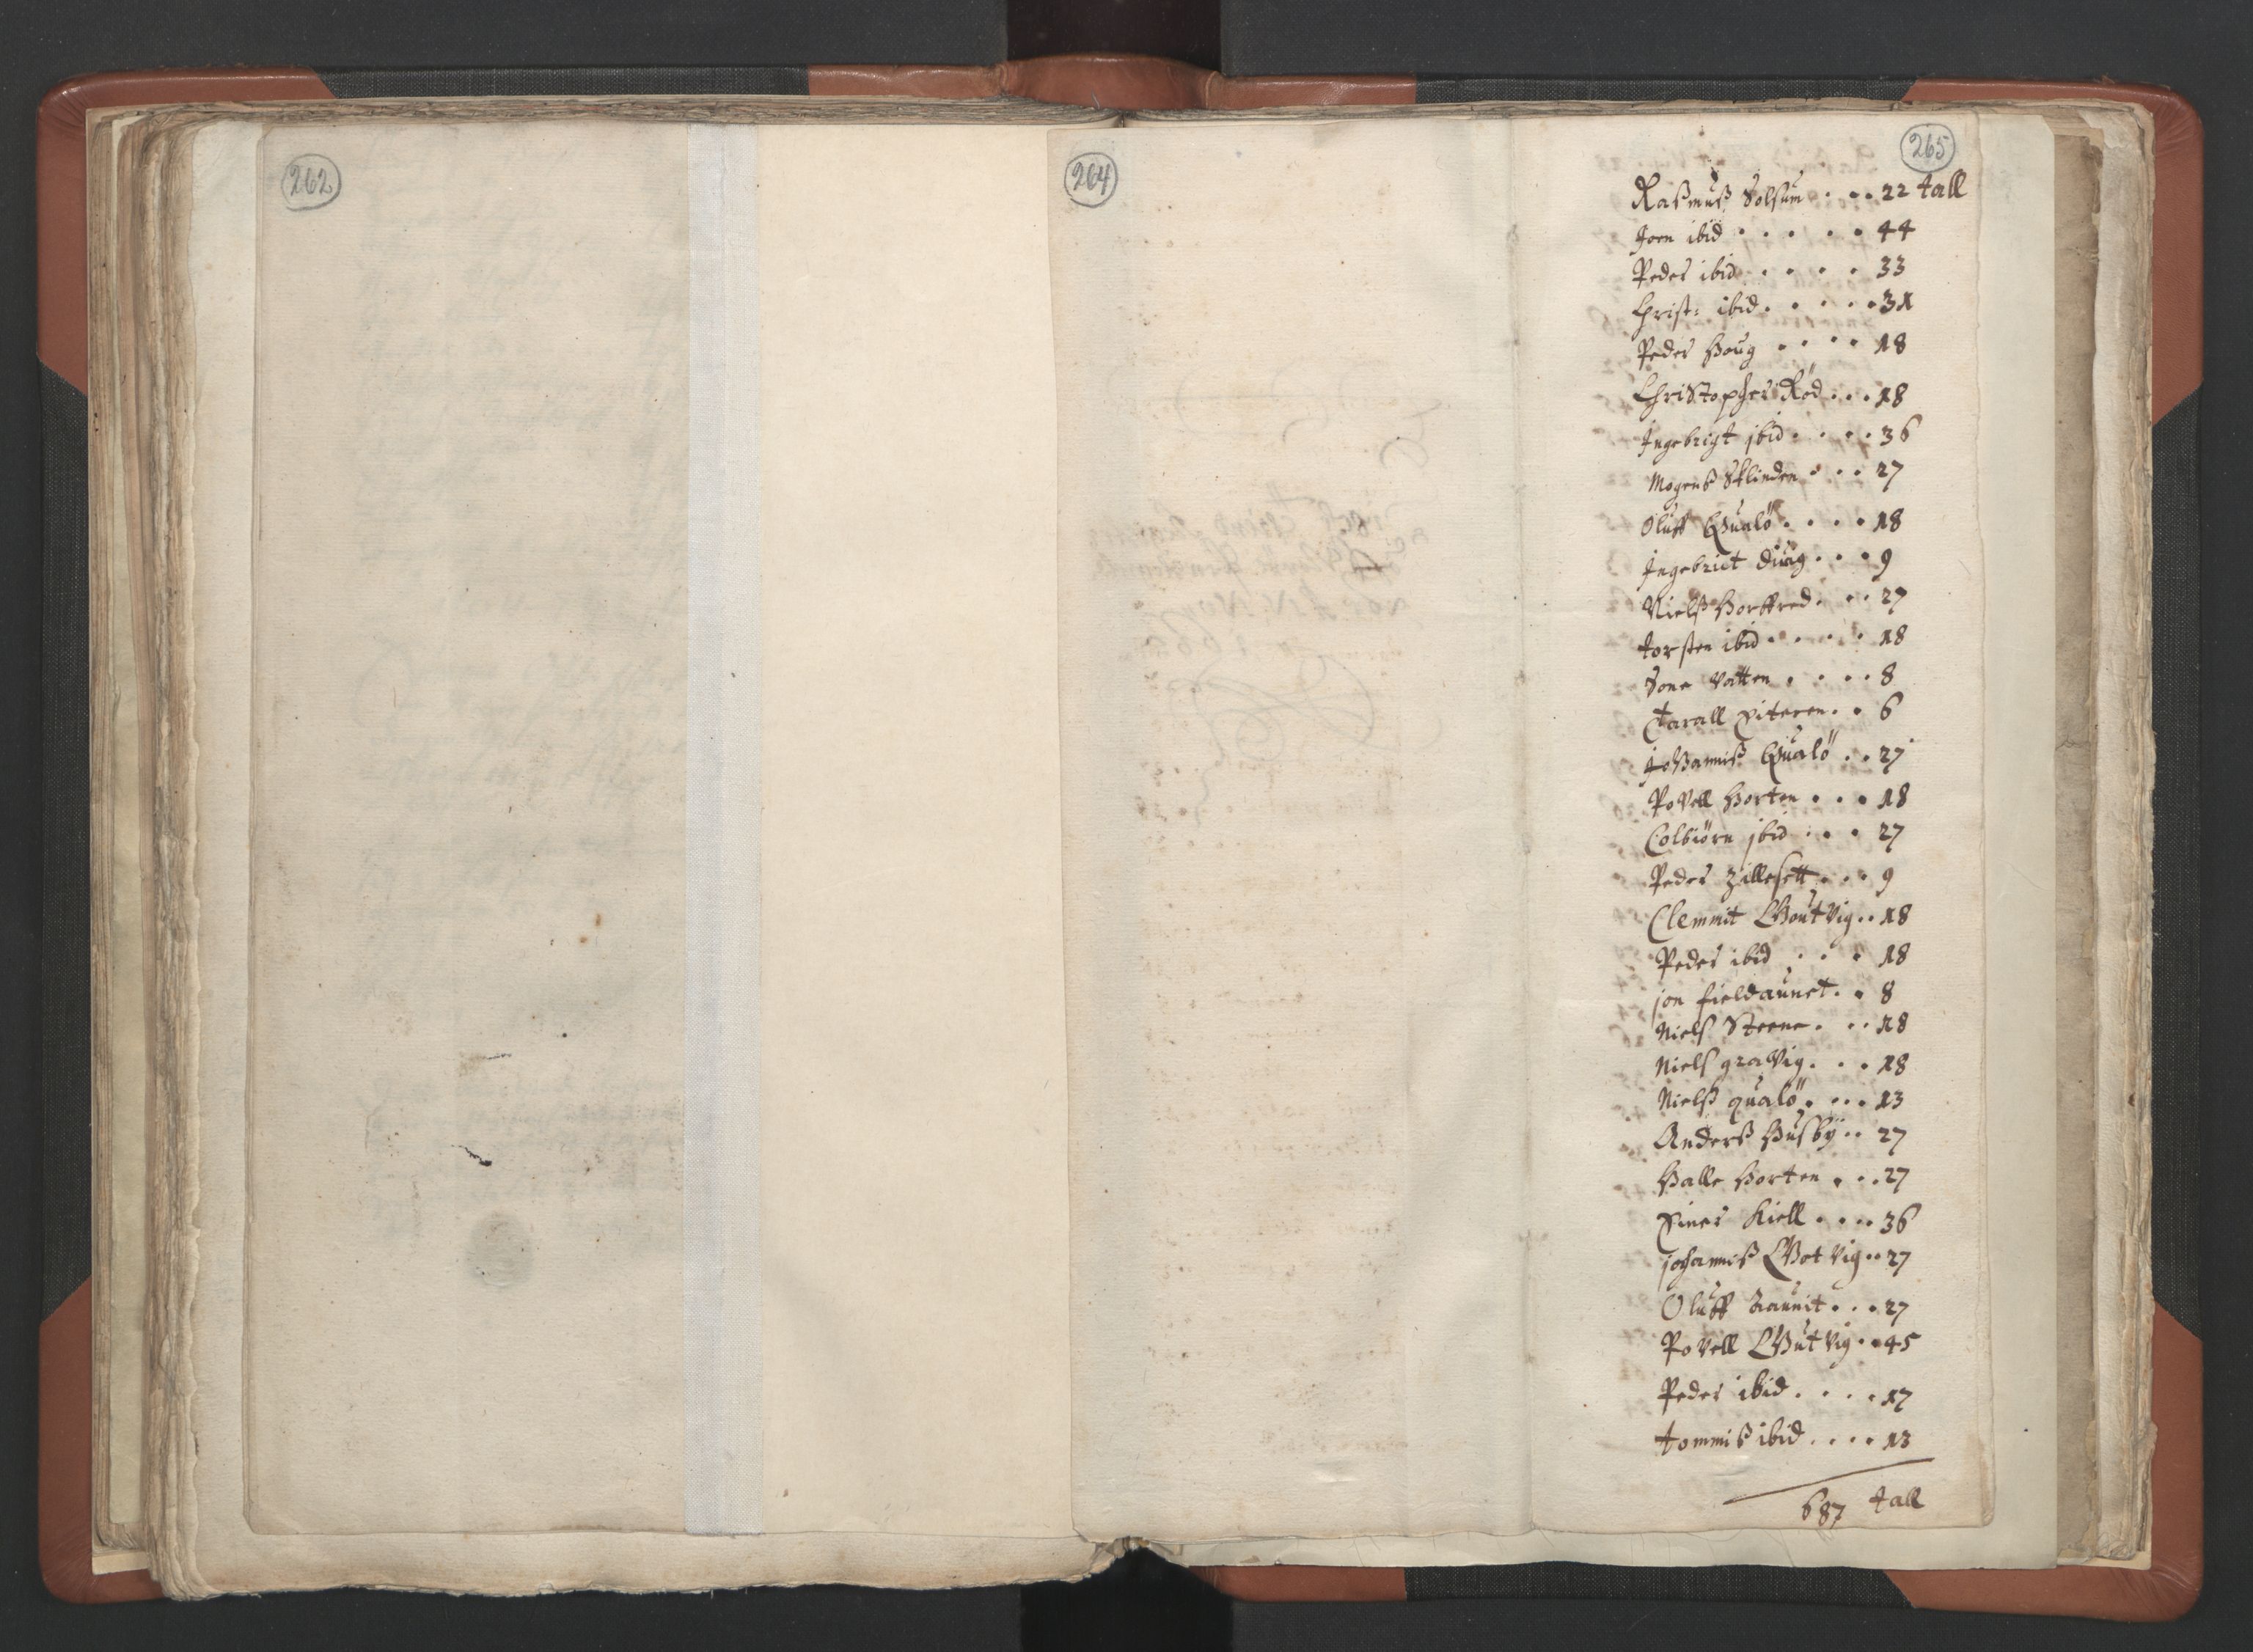 262
264
265
Raßmuß Solsum . . . 22 tall
Joen ibid . . . . . 44
Peder ibid . . . . 33
Christ: ibid . . . . . 31
Peder Houg . . . . 18
Christopher Rød . . . 18
Ingebrigt jbid . . . . 36
Mogens Sklinden . . . 27
Oluff Qualö . . . . 18
Ingebrict duag . . . 9
Nielß Horffred . . . 27
Torsten ibid . . . . . 18
Sone Vatten . . . . 8
Tarall Eiteren . . 6
Johanniß Qualö . . 27
Povell Horten . . . 18
Colbiörn jbid . . . 27
Peder Zillesett . . . 9
Clemmit Goutvig . . 18
Peder ibid . . . 18
jon fieldaunet . . 8
Niels Steene . . . 18
Niels gravig . . . 18
Nielß qualö . . . . 13
Anderß Hußbÿ . . 27
Halle Horten . . . 27
Einer Kiell . . . . 36
johanniß Gotvig . . 27
Oluff Aaunit . . . 27
Povell Gutvig . . 45
Peder ibid . . . . 17
Tommiß ibid . . . . 13
687 tall